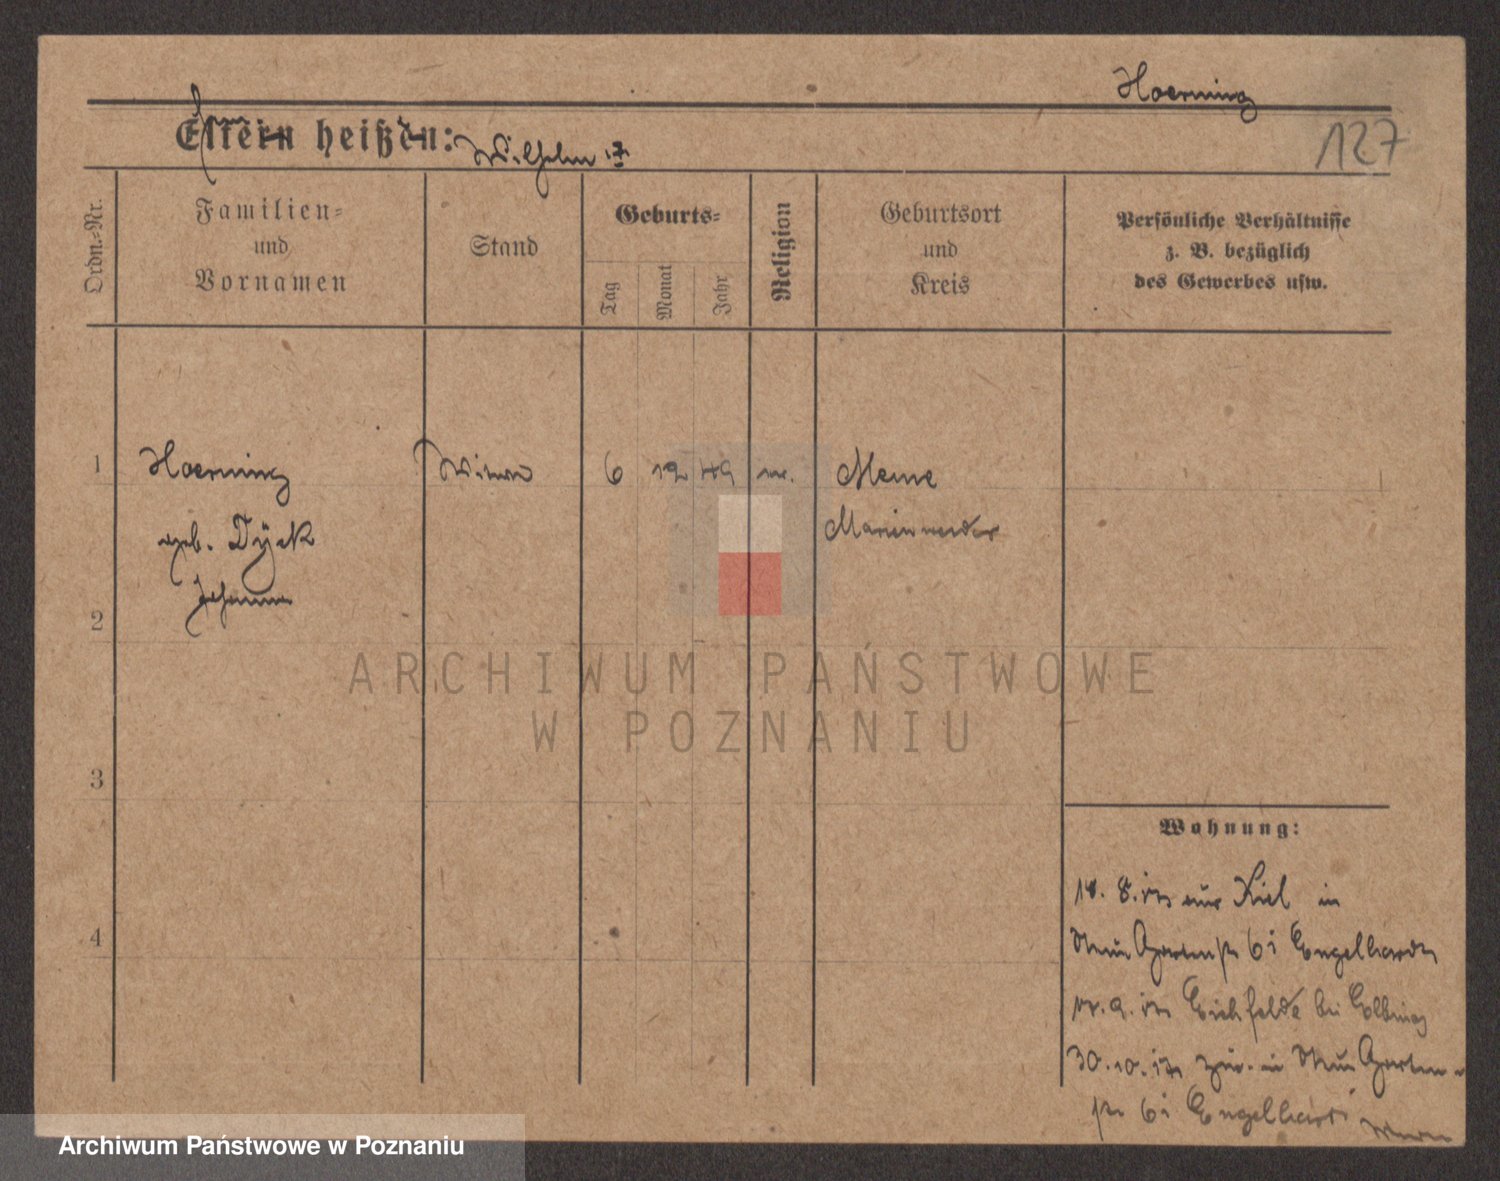 Hoerning
127
Eltern heißen: Wilhelm
Ordn.-Nr.
Familien-
und
Vornamen
Stand
Geburts-
Tag
Monat
Jahr
Religion
Geburtsort
und
Kreis
Persönliche Verhältnisse
z. B. bezüglich
des Gewerbes usw.
1
Hoerning
Witwe
6
12
49
Mewe
geb. Dÿck
Marienwerder
2
3
Wohnung:
4
8. aus Kiel in
6 Engelhardt
Eichfelde bei Elbing
30.10. zur. in
6 Engelhardt
ARCHIWUM PAŃSTWOWE
W POZNANIU
Archiwum Państwowe w Poznaniu